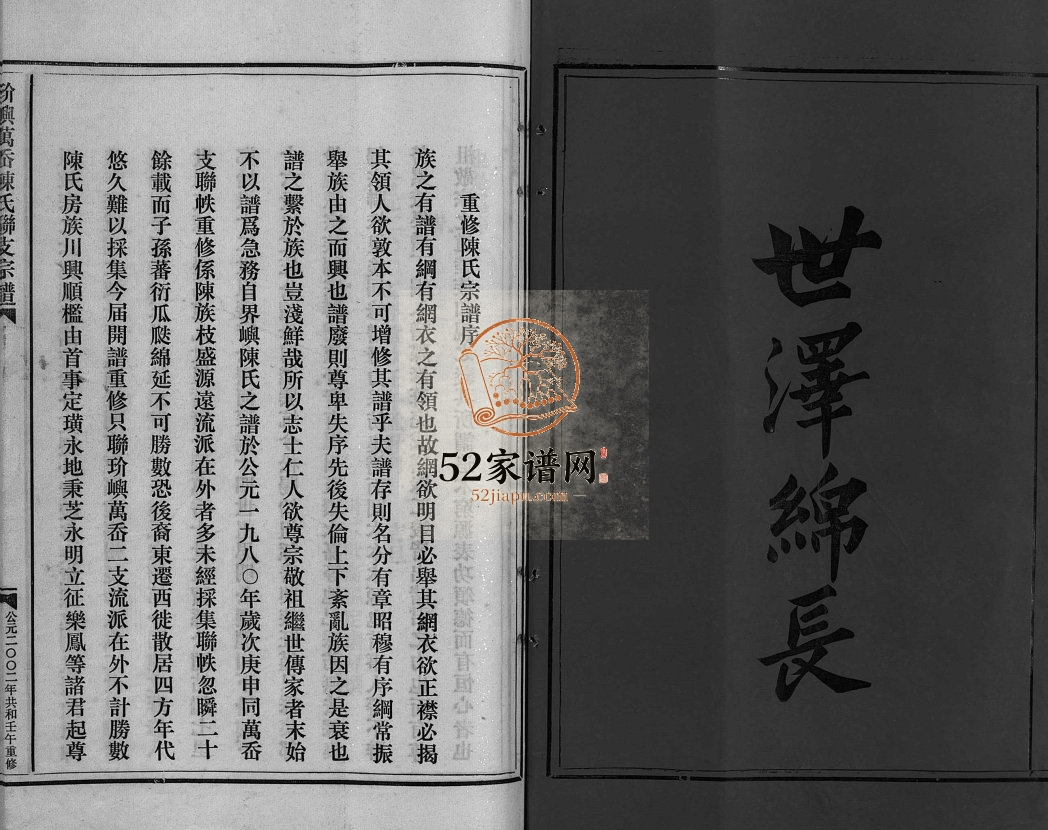 世澤綿長
重修陳氏宗譜序
族之有譜有綱有網衣之有領也故網欲明目必舉其網衣欲正襟必揭
其領人欲敦本不可增修其譜乎夫譜存則名分有章昭穆有序綱常振
舉族由之而興也譜廢則尊卑失序先後失倫上下紊亂族因之是衰也
譜之繫於族也豈淺鮮哉所以志士仁人欲尊宗敬祖繼世傳家者末始
不以譜爲急務自界嶼陳氏之譜於公元一九八〇年歲次庚申同萬岙
支聯帙重修係陳族枝盛源遠流派在外者多未經採集聯帙忽瞬二十
餘載而子孫蕃衍瓜瓞綿延不可勝數恐後裔東遷西徙散居四方年代
悠久難以採集今届開譜重修只聯玠嶼萬岙二支流派在外不計勝數
陳氏房族川興順檻由首事定璜永地秉芝永明立征樂鳳等諸君起尊
玠嶼萬岙陳氏聯支宗譜
公元二〇〇二年共和壬午重修
52家谱网
52jiapu.com